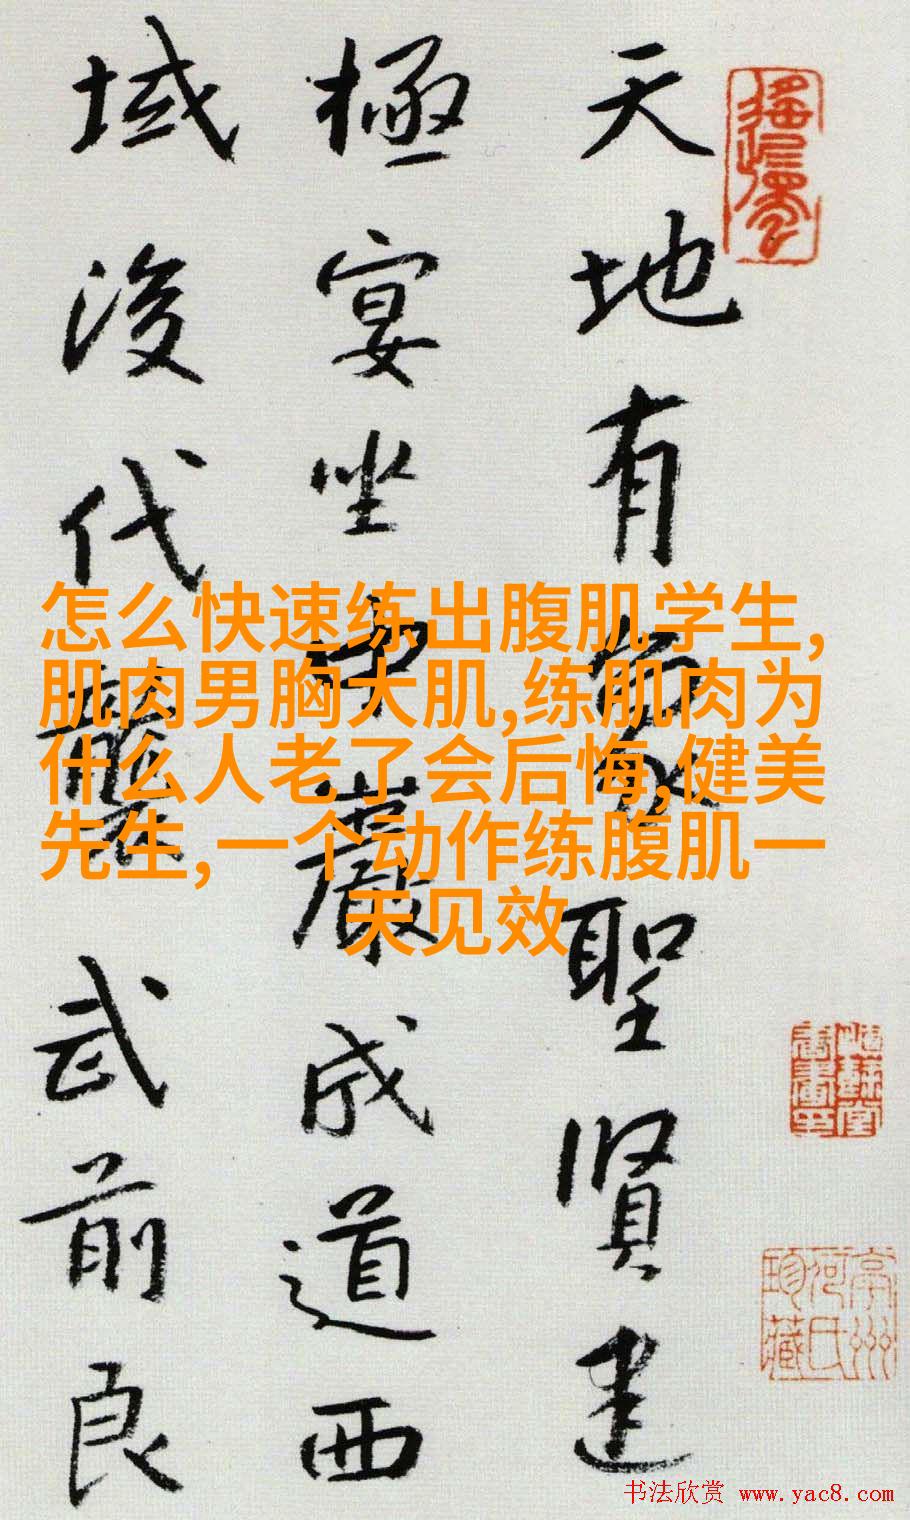 天地有聖賢建
極宴坐中成道西
域後代襲武前良
怎么快速练出腹肌学生,
肌肉男胸大肌,练肌肉为
什么人老了会后悔,健美
先生,一个动作练腹肌一
天见效
亭州
何氏
珍藏
书法欣赏 www.yac8.com